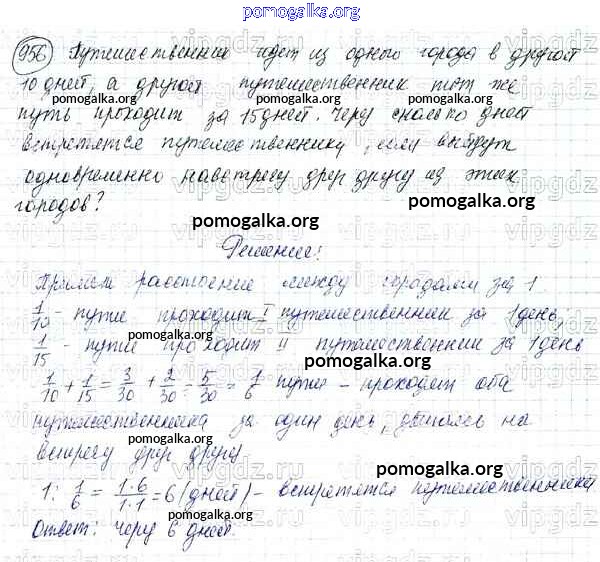 pomogalka.org
956 Путешественник идет из одного города в другой
10 дней, а другой путешественник тот же
pomogalka.org pomogalka.org
путь проходит за 15 дней. Через сколько дней
встретятся путешественники, если выйдут
pomogalka.org pomogalka.org
одновременно навстречу друг другу из этих
городов?
pomogalka.org
Решение:
Примем расстояние между городами за 1
1/10 - пути проходит I путешественник за 1 день;
pomogalka.org pomogalka.org
1/15 - пути проходит II путешественник за 1 день
pomogalka.org
1/10 + 1/15 = 3/30 + 2/30 = 5/30 = 1/6 пути - проходят оба
путешественника за один день, двигаясь на
pomogalka.org pomogalka.org
встречу друг другу.
pomogalka.org
1 : 1/6 = 1·6/1·1 = 6 (дней) - встретятся путешественники
pomogalka.org pomogalka.org
Ответ: через 6 дней.